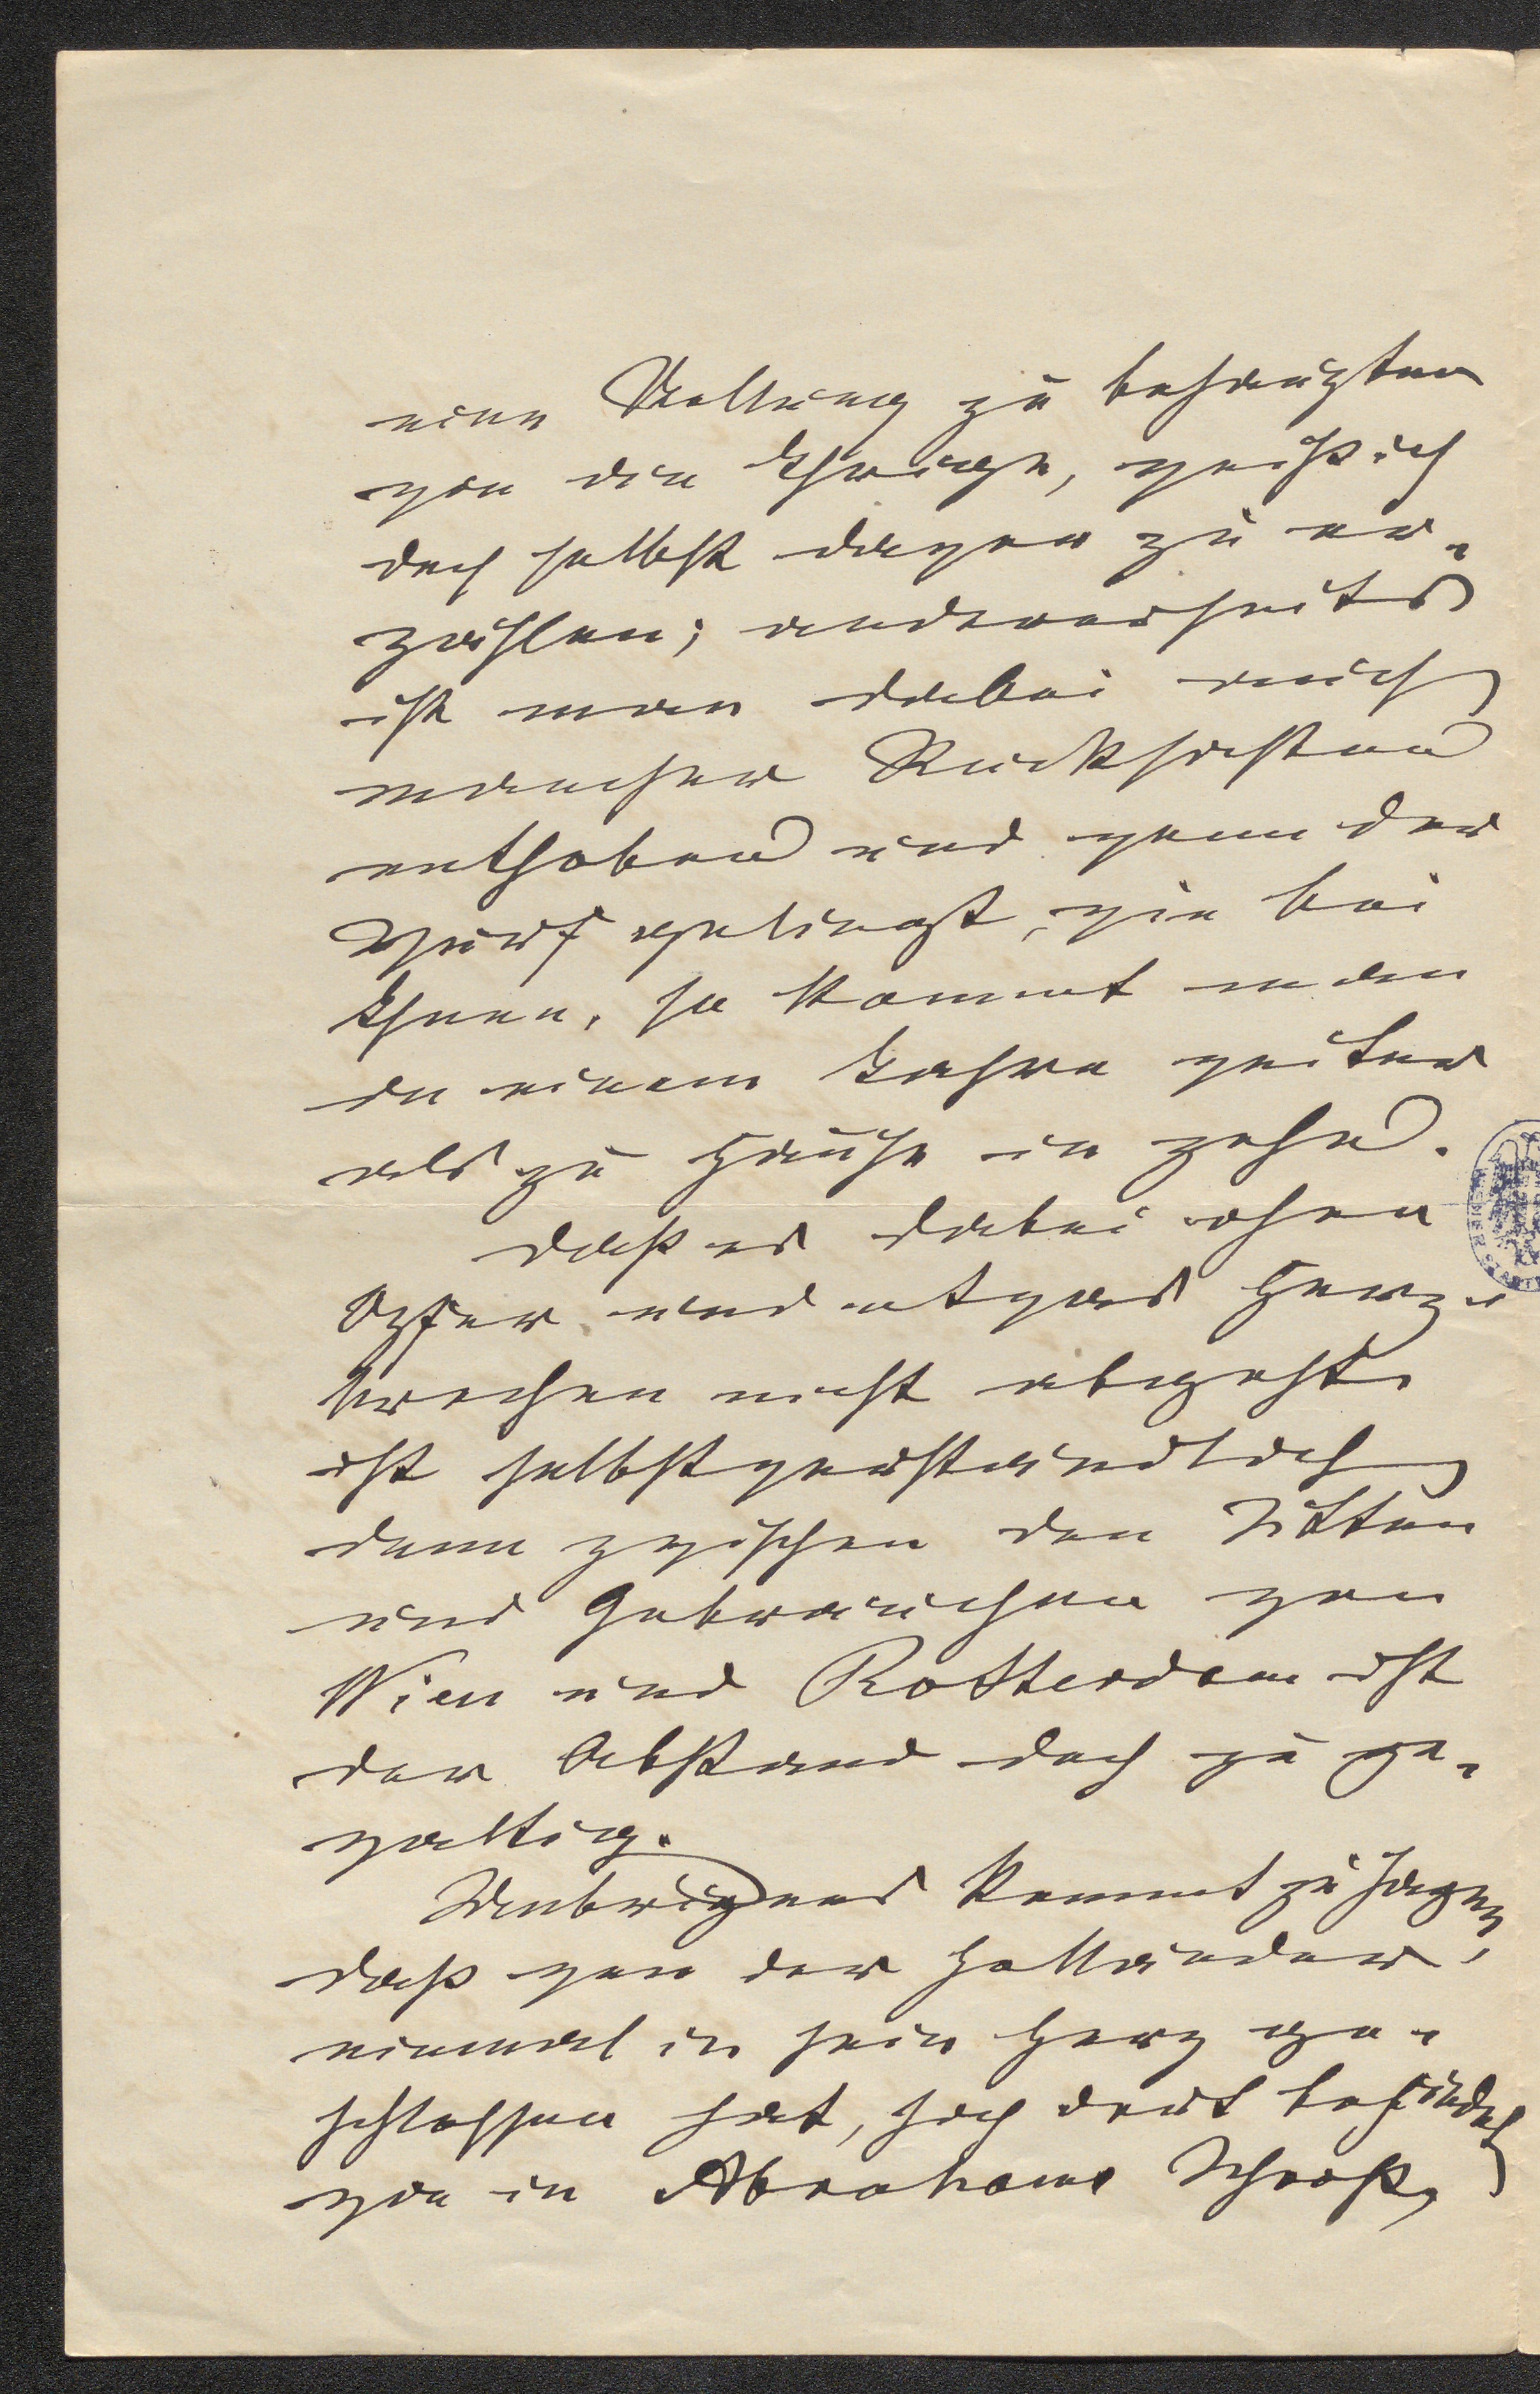 eine Stellung zu behaupten
wie die Ihrige, weiß ich
doch selbst davon zu er-
zählen; andererseits
ist man dabei auch
mancher Rücksichten
enthoben und wenn der
Wurf gelingt, wie bei
Ihnen, so kommt man
in einem Jahre weiter
als zu Hause in zehn.
Daß es dabei ohne
Opfer und etwas Herz-
brechen nicht abgeht,
ist selbstverständlich
denn zwischen den Sitten
und Gebräuchen von
Wien und Rotterdam ist
der Abstand doch zu ge-
waltig.
Uebrigens kommt zu sagen,
daß wen der Holländer
einmal in sein Herz ge-
schlossen hat, sich dort befindet
wie in Abrahams Schooß,